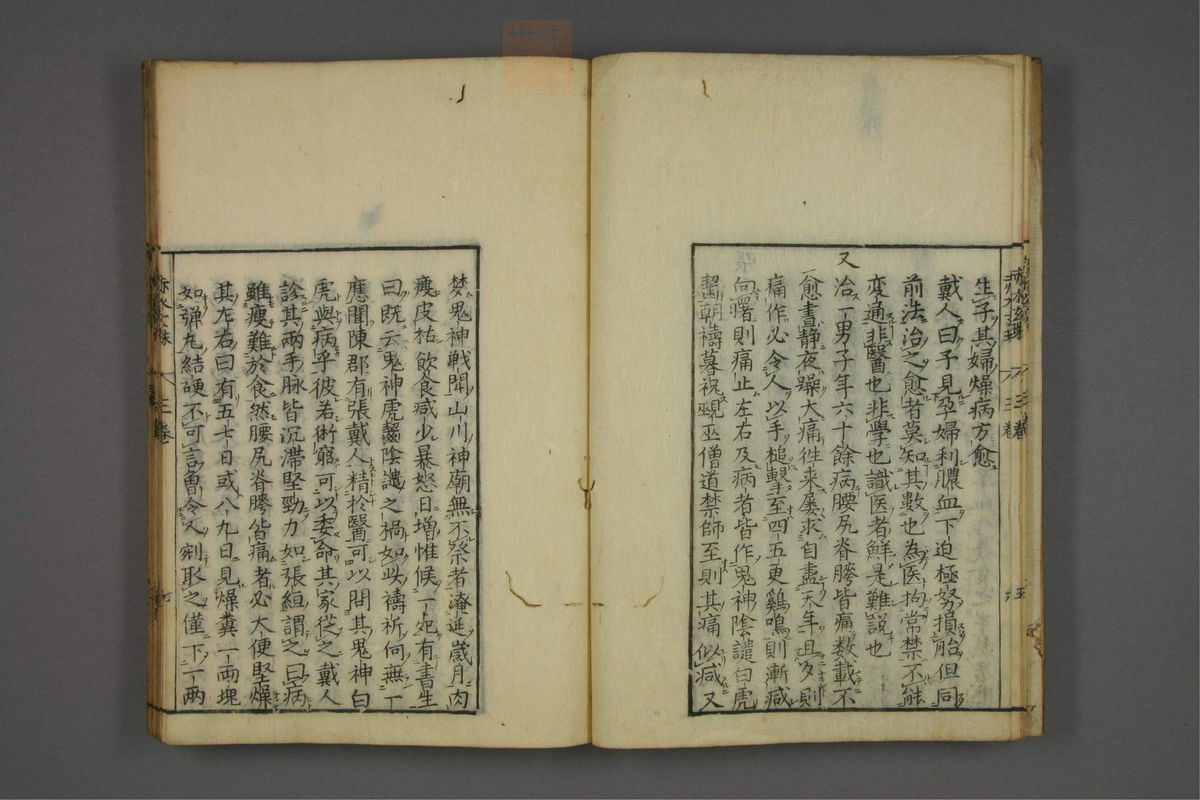 生子其婦燥病方愈
戴人曰予見孕婦利膿血下迫極努損胎但同
前法治之愈者莫知其數也為医拘常禁不能
変通非醫也非學也識医者鮮是難説也
又治一男子年六十餘病腰尻脊胯皆痛数載不
愈晝静夜躁大痛徃来屡求自盡天年且多則
痛作必令人以手槌擊至四五更鷄鳴則漸减
向曙則痛止左右及病者皆作鬼神陰譴白虎
齧朝禱暮祝覡巫僧道禁師至則其痛似减又
梦鬼神戦閗山川神廟無不祭者淹延歳月肉
瘦皮枯飲食减少暴怒日增惟候一死有書生
曰既云鬼神虎齧陰譴之禍如此禱祈何無一
應聞陳郡有張戴人精於醫可以問其鬼神白
虎與病乎彼若術窮可以委命其家從之戴人
診其兩手脉皆沉滯堅勁力如張絙謂之曰病
雖瘦難於食然腰尻脊胯皆痛者必大便堅燥
其左右曰有五七日或八九日見燥糞一兩塊
如弾丸結硬不可言曽令人剜取之僅下一兩
赤水玄珠
三卷